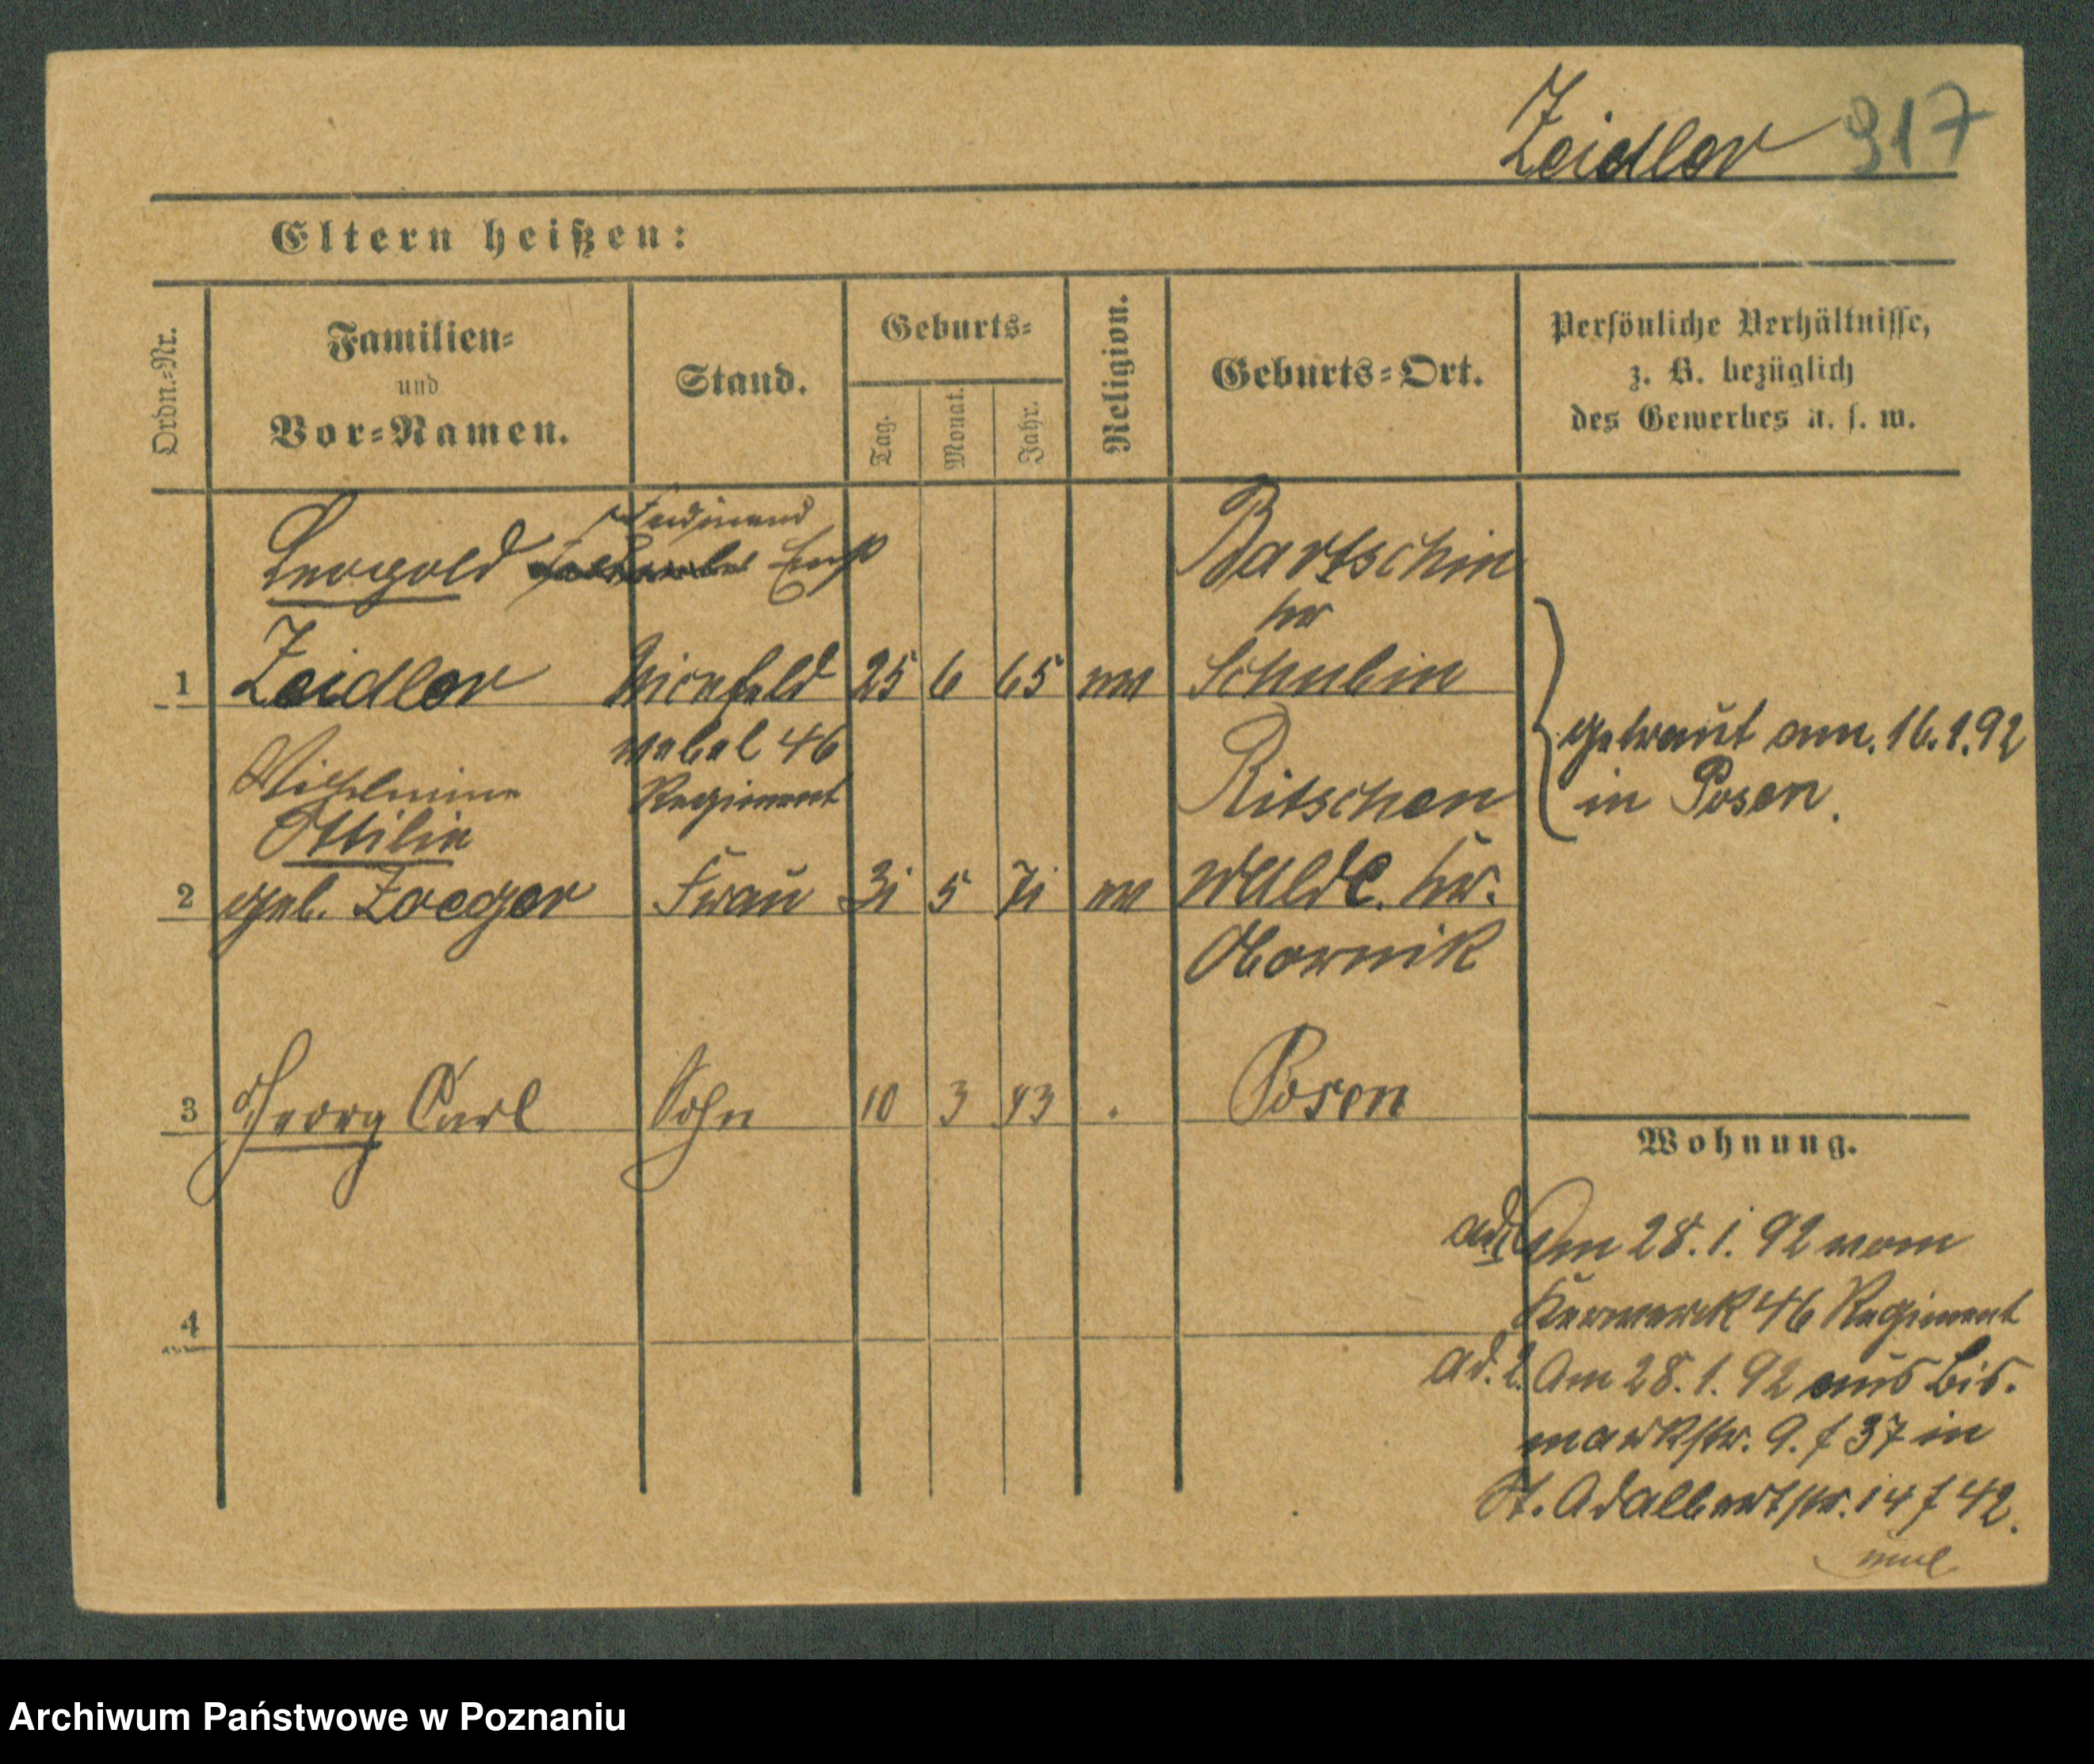 Zeidler 917
Eltern heißen:
Ordn.-Nr.
Familien-
und
Vor-Namen.
Stand.
Geburts-
Tag.
Monat.
Jahr.
Religion.
Geburts-Ort.
Persönliche Verhältnisse,
z. B. bezüglich
des Gewerbes u. s. w.
Ferdinand
Leopold Ernst
Bartschin
Kr
1 Zeidler Vicefeld 25 6 65 ev Schubin
webel 46
Regiment
Wilhelmine
Ottilie
Ritschen
2 geb. Zaeger Frau 31 5 71 ev walde. Kr.
Obornik
getraut am. 16.1.92
in Posen.
3 Georg Carl Sohn 10 3 93 Posen
Wohnung.
4
ad 1 Am 28. 1. 92 vom
Kernwerk 46 Regiment
ad. 2. Am 28. 1. 92 aus Bis.
markstr. 9. f 37 in
St. Adalbertstr. 14 f 42.
Archiwum Państwowe w Poznaniu